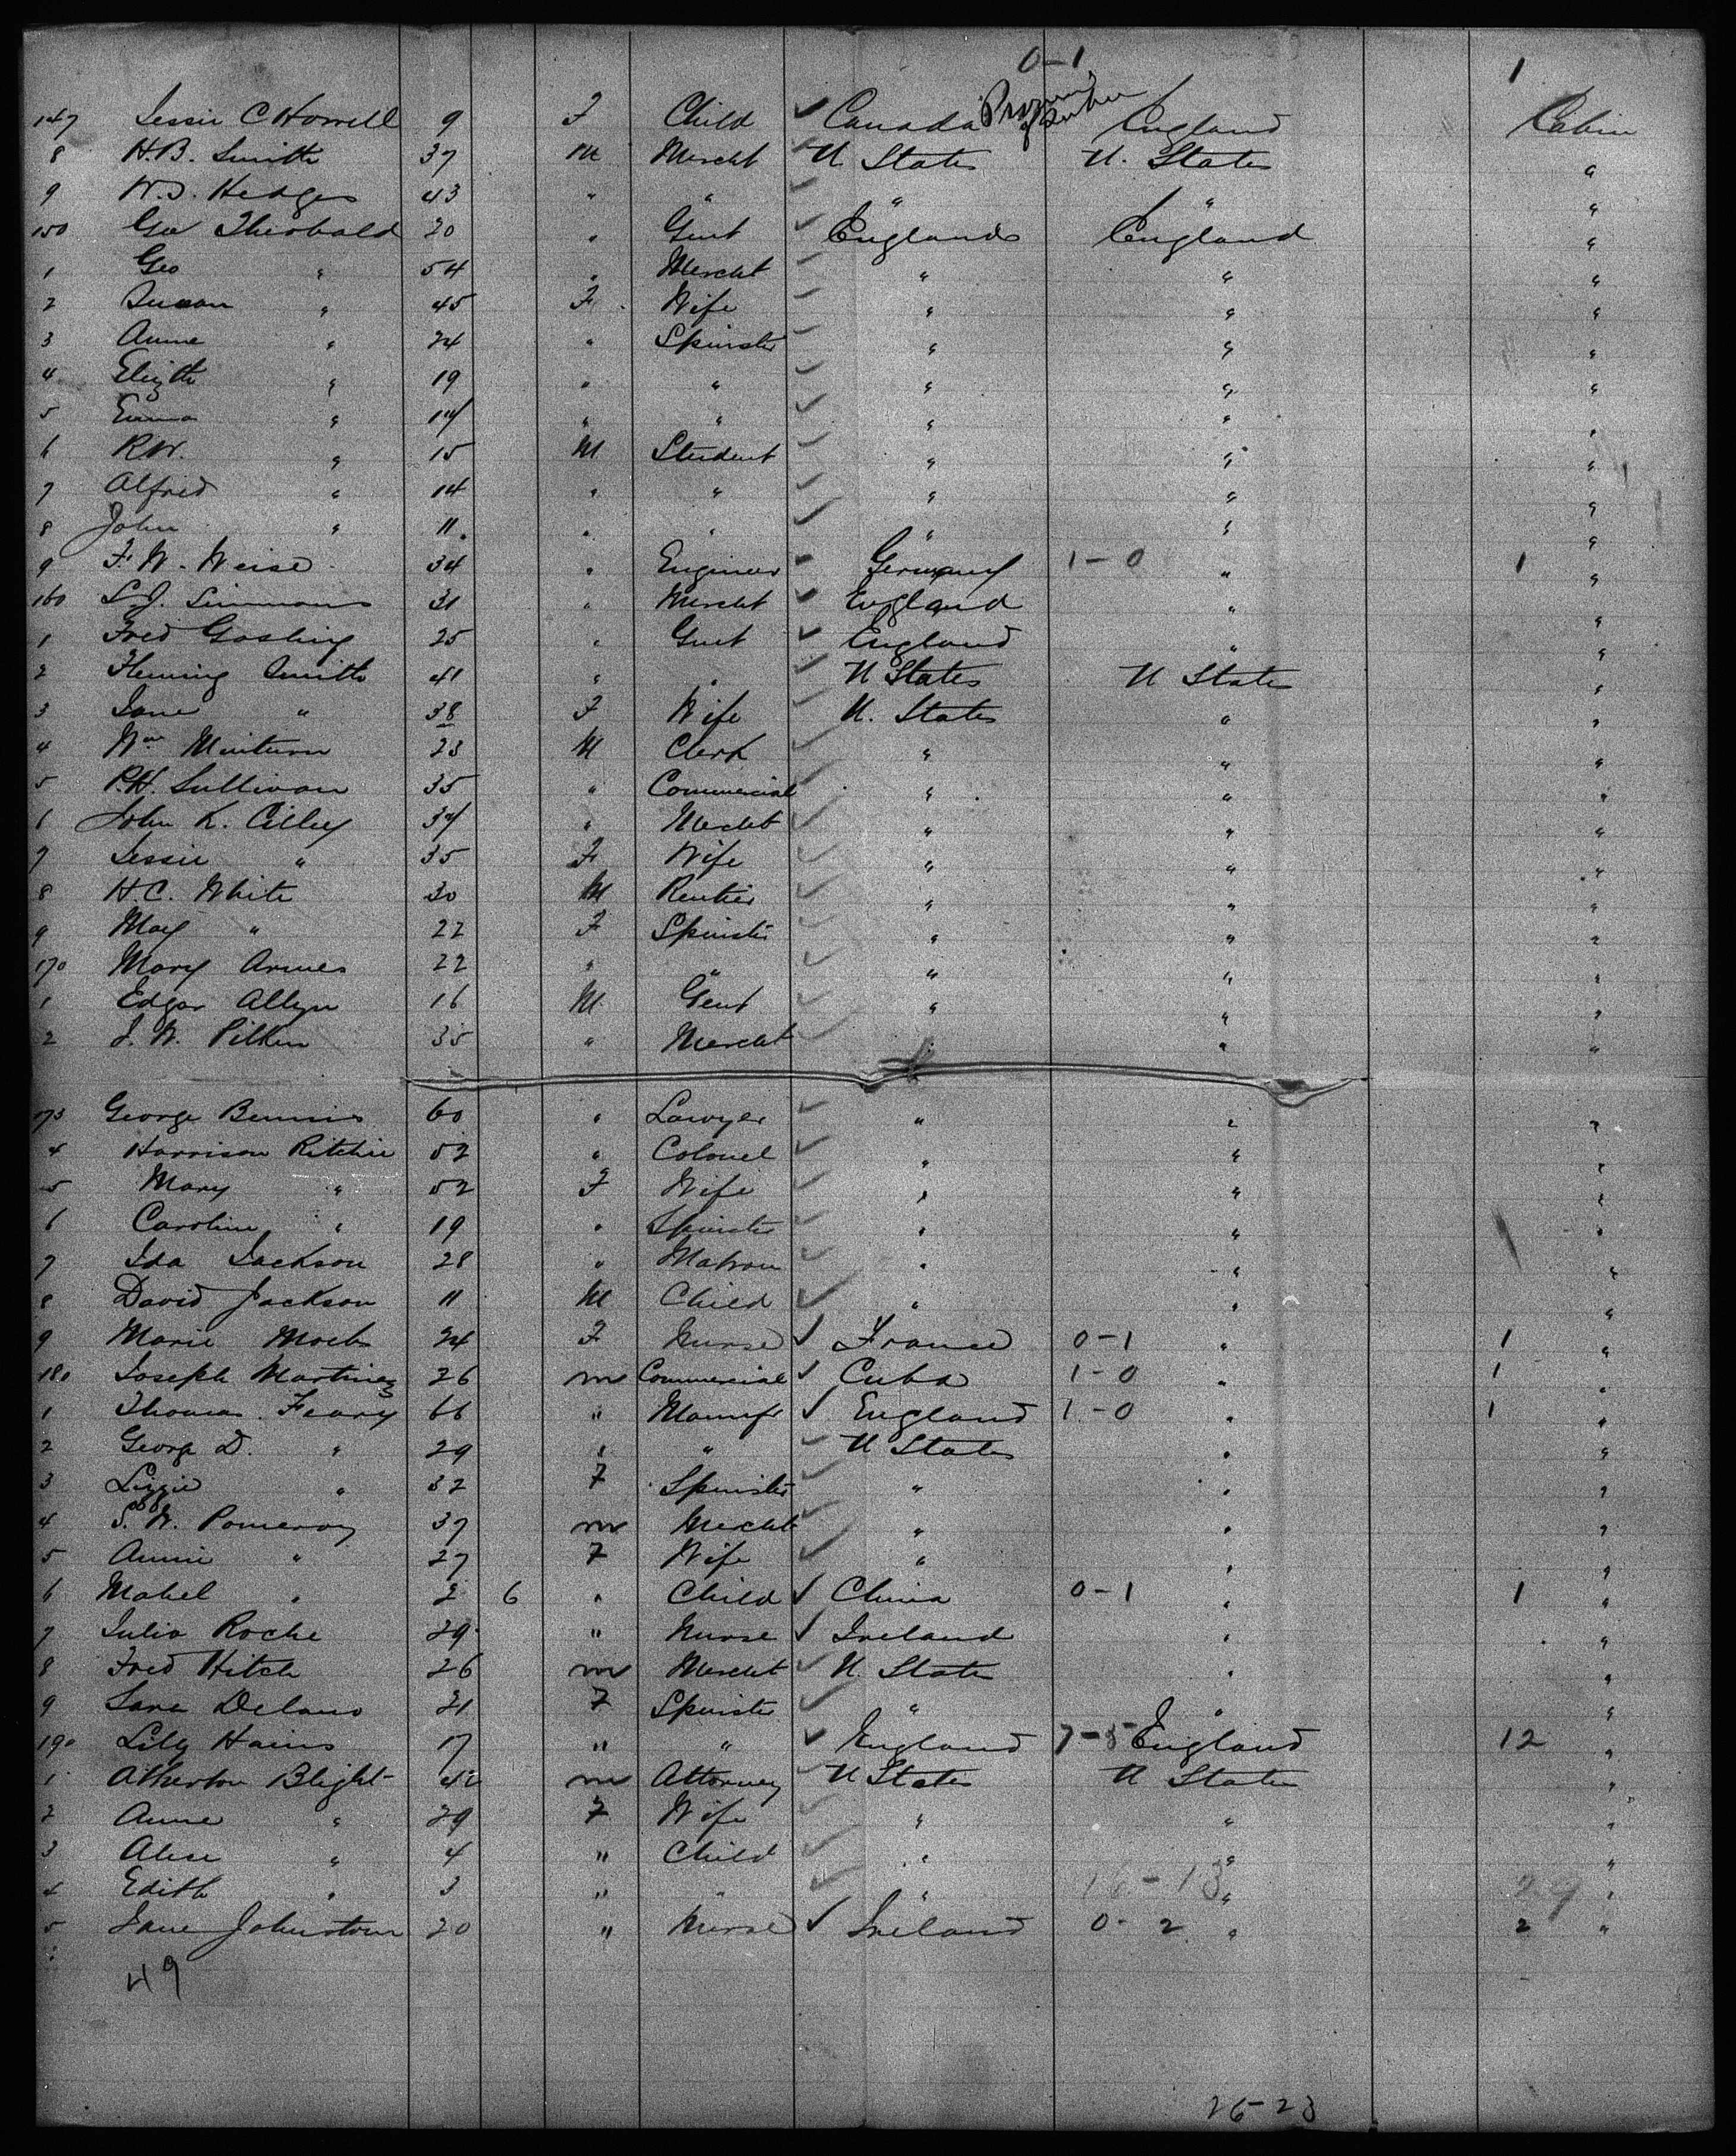 0-1 1
147 Jessie C Howell 9 F Child Canada Province of Quebec England Cabin
8 H.B. Smith 37 M Mercht U States U. States "
9 W.S. Hedges 43 " " " " "
150 Geo Theobald 20 " Gent England England "
1 Geo " 54 " Mercht " " "
2 Susan " 45 F Wife " " "
3 Anne " 24 " Spinster " " "
4 Elizth " 19 " " " " "
5 Emma " 17 " " " " "
6 R.W. " 15 M Student " " "
7 Alfred " 14 " " " " "
8 John " 11 " " " " "
9 F. W. Weise 34 " Engineer Germany 1-0 " 1 "
160 S J. Simmons 31 " Mercht England " "
1 Fred Gosling 25 " Gent England " "
2 Fleming Smith 41 " " U States U States "
3 Jane " 38 F Wife U. States " "
4 Wm Minturn 23 M Clerk " " "
5 P.H. Sullivan 35 " Commercial " " "
6 John K. Cilley 37 " Mercht " " "
7 Jessie " 35 F Wife " " "
8 H.C. White 30 M Rentier " " "
9 May " 22 F Spinster " " "
170 Mary Armes 22 " " " " "
1 Edgar Allyn 16 M Gent " " "
2 J. W. Pitkin 35 " Mercht " " "
173 George Bemis 60 " Lawyer " " "
4 Harrison Ritchie 52 " Colonel " " "
5 Mary " 52 F Wife " " "
6 Caroline " 19 " Spinster " " "
7 Ida Jackson 28 " Matron " " "
8 David Jackson 11 M Child " " "
9 Marie 24 F Nurse France 0-1 " 1 "
180 Joseph Martinez 26 m Commercial Cuba 1-0 " 1 "
1 Thomas Feary 66 " Manufr England 1-0 " 1 "
2 George D. " 29 " " U States " "
3 Lizzie " 32 F Spinster " " "
4 S. W. Pomeroy 37 m Mercht " " "
5 Annie " 27 F Wife " " "
6 Mabel " 2 6 " Child China 0-1 " 1 "
7 Julia Roche 29 " Nurse Ireland " "
8 Fred Hitch 26 m Mercht U. States " "
9 Sara Delano 21 F Spinster " " "
190 Lily Hains 17 " " England 7-5 England 12 "
1 Atherton Blight 42 m Attorney U States U States "
2 Anne " 29 F Wife " " "
3 Alice " 4 " Child " " "
4 Edith " 3 " " " 16-13 " 29 "
5 Jane Johnston 20 " Nurse Ireland 0-2 " 2 "
49
26-23